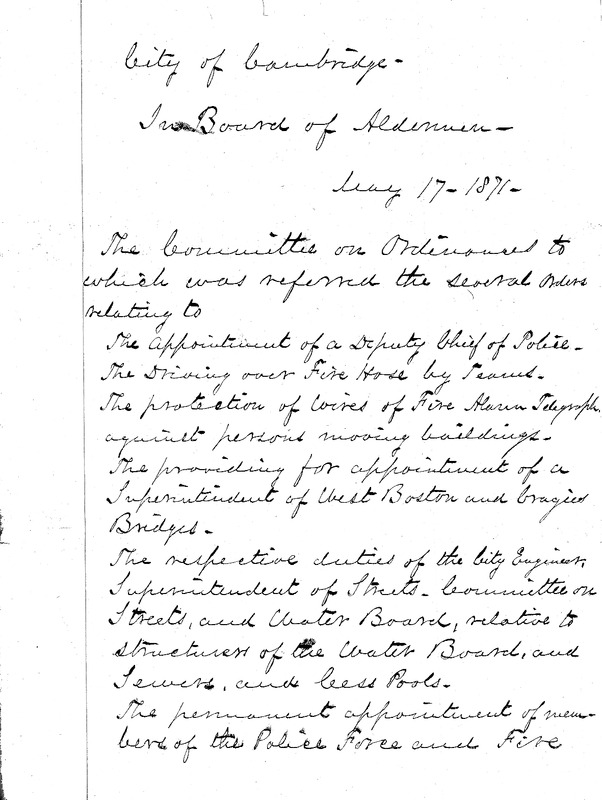 City of Cambridge -
In Board of Aldermen -
May 17 - 1871 -
The Committee on Ordinances to
which was referred the several orders
relating to
The appointment of a Deputy Chief of Police -
The Driving over Fire Hose by Teams -
The protection of Wires of Fire Alarm Telegraph
against persons moving buildings -
The providing for appointment of a
Superintendent of West Boston and Cragies
Bridges -
The respective duties of the City Engineer,
Superintendent of Streets - Committee on
Streets, and Water Board, relative to
structures of the Water Board, and
Sewers, and Cess Pools -
The permanent appointment of mem-
bers of the Police Force and Fire